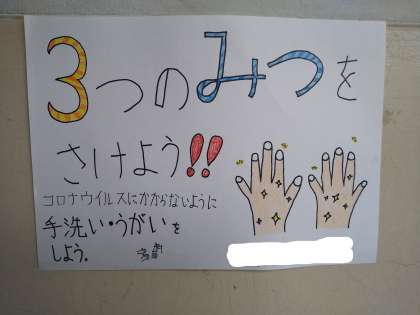 3つのみつを
さけよう!!
コロナウイルスにかからないように
手洗い・うがいを
しよう。